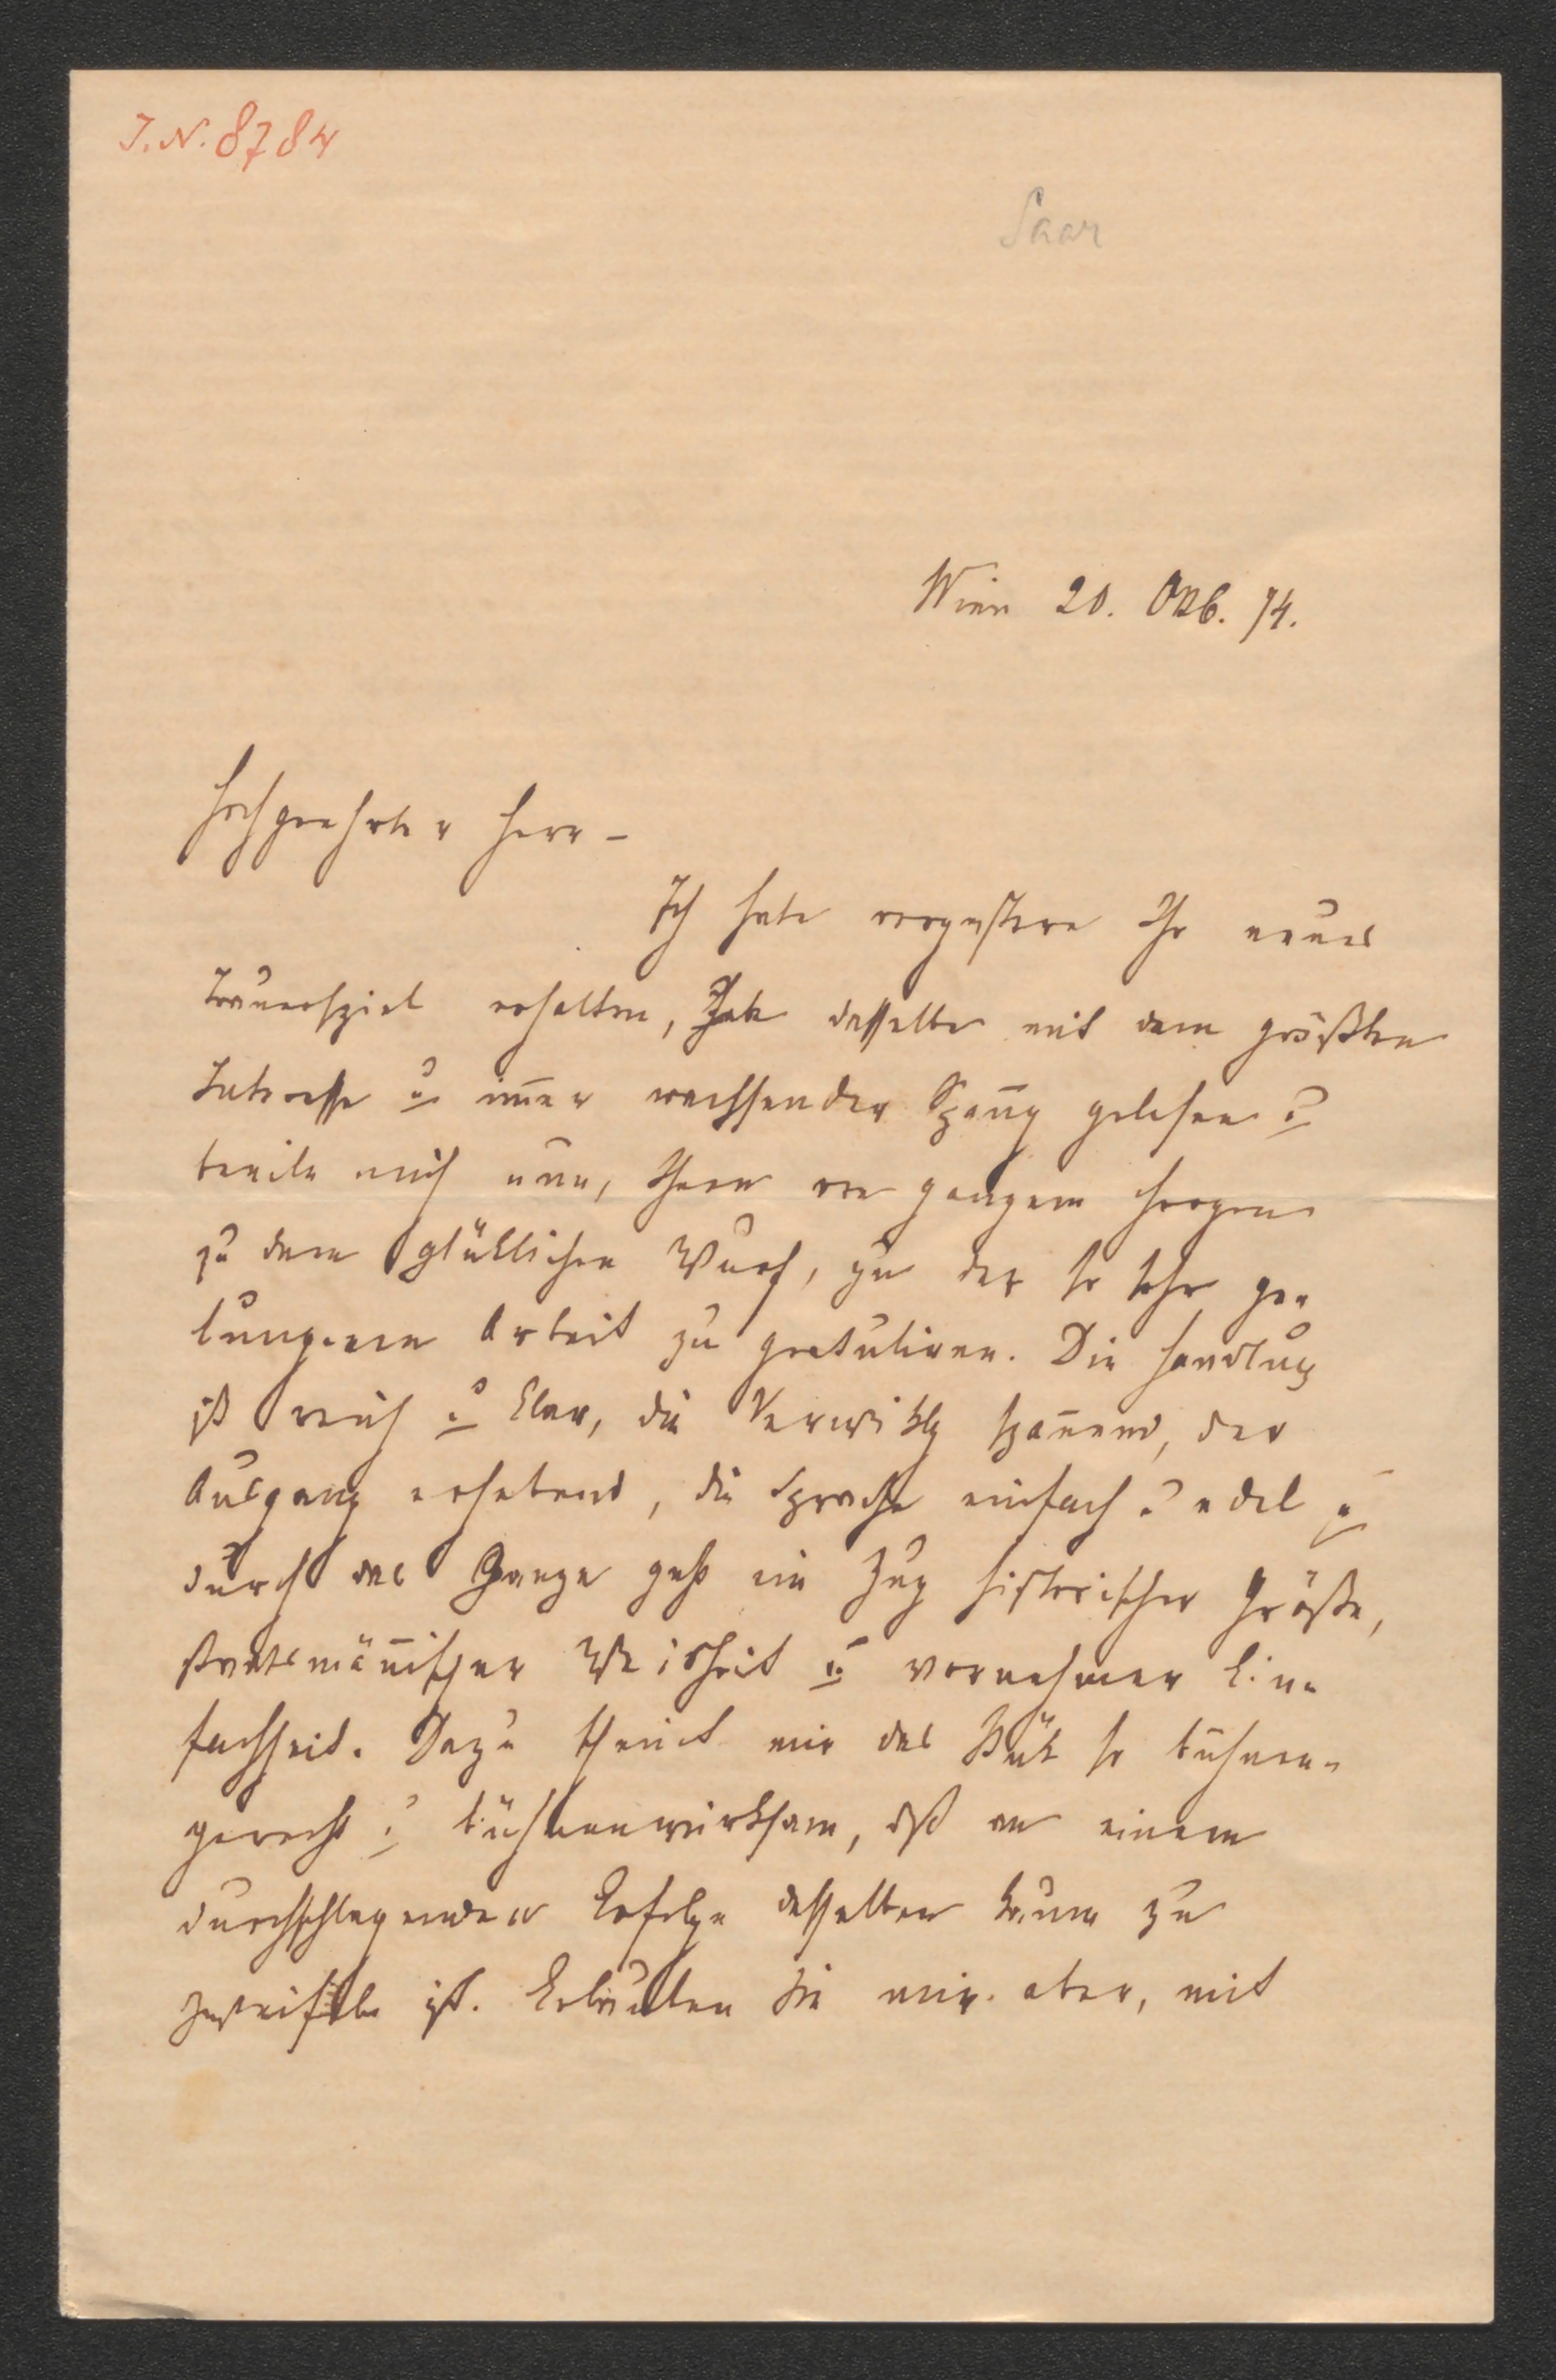 J. N. 8784
Saar
Wien 20. Okb. 74.
Hochgeehrter Herr –
Ich habe vorgestern Ihr neues
Trauerspiel erhalten, habe dasselbe mit dem größten
Interesse u im̄er wachsender Span̄g gelesen u
beeile mich nun, Ihnen von ganzem Herzen
zu dem glüklichen Wurf, zu der so sehr ge-
lungenen Arbeit zu gratuliren. Die Handlug
ist reich u klar, die Verwiklg span̄end, der
Ausgang erhebend, die Sprache einfach u edel u
durch das Ganze geht ein Zug historischer Größe,
staatsmän̄ischer Weisheit u vornehmer Ein-
fachheit. Dazu scheint mir das Stük so bühnen-
gerecht u bühnenwirksam, dß an einem
durchschlagenden Erfolge desselben kaum zu
zweifeln ist. Erlauben Sie mir aber, mit